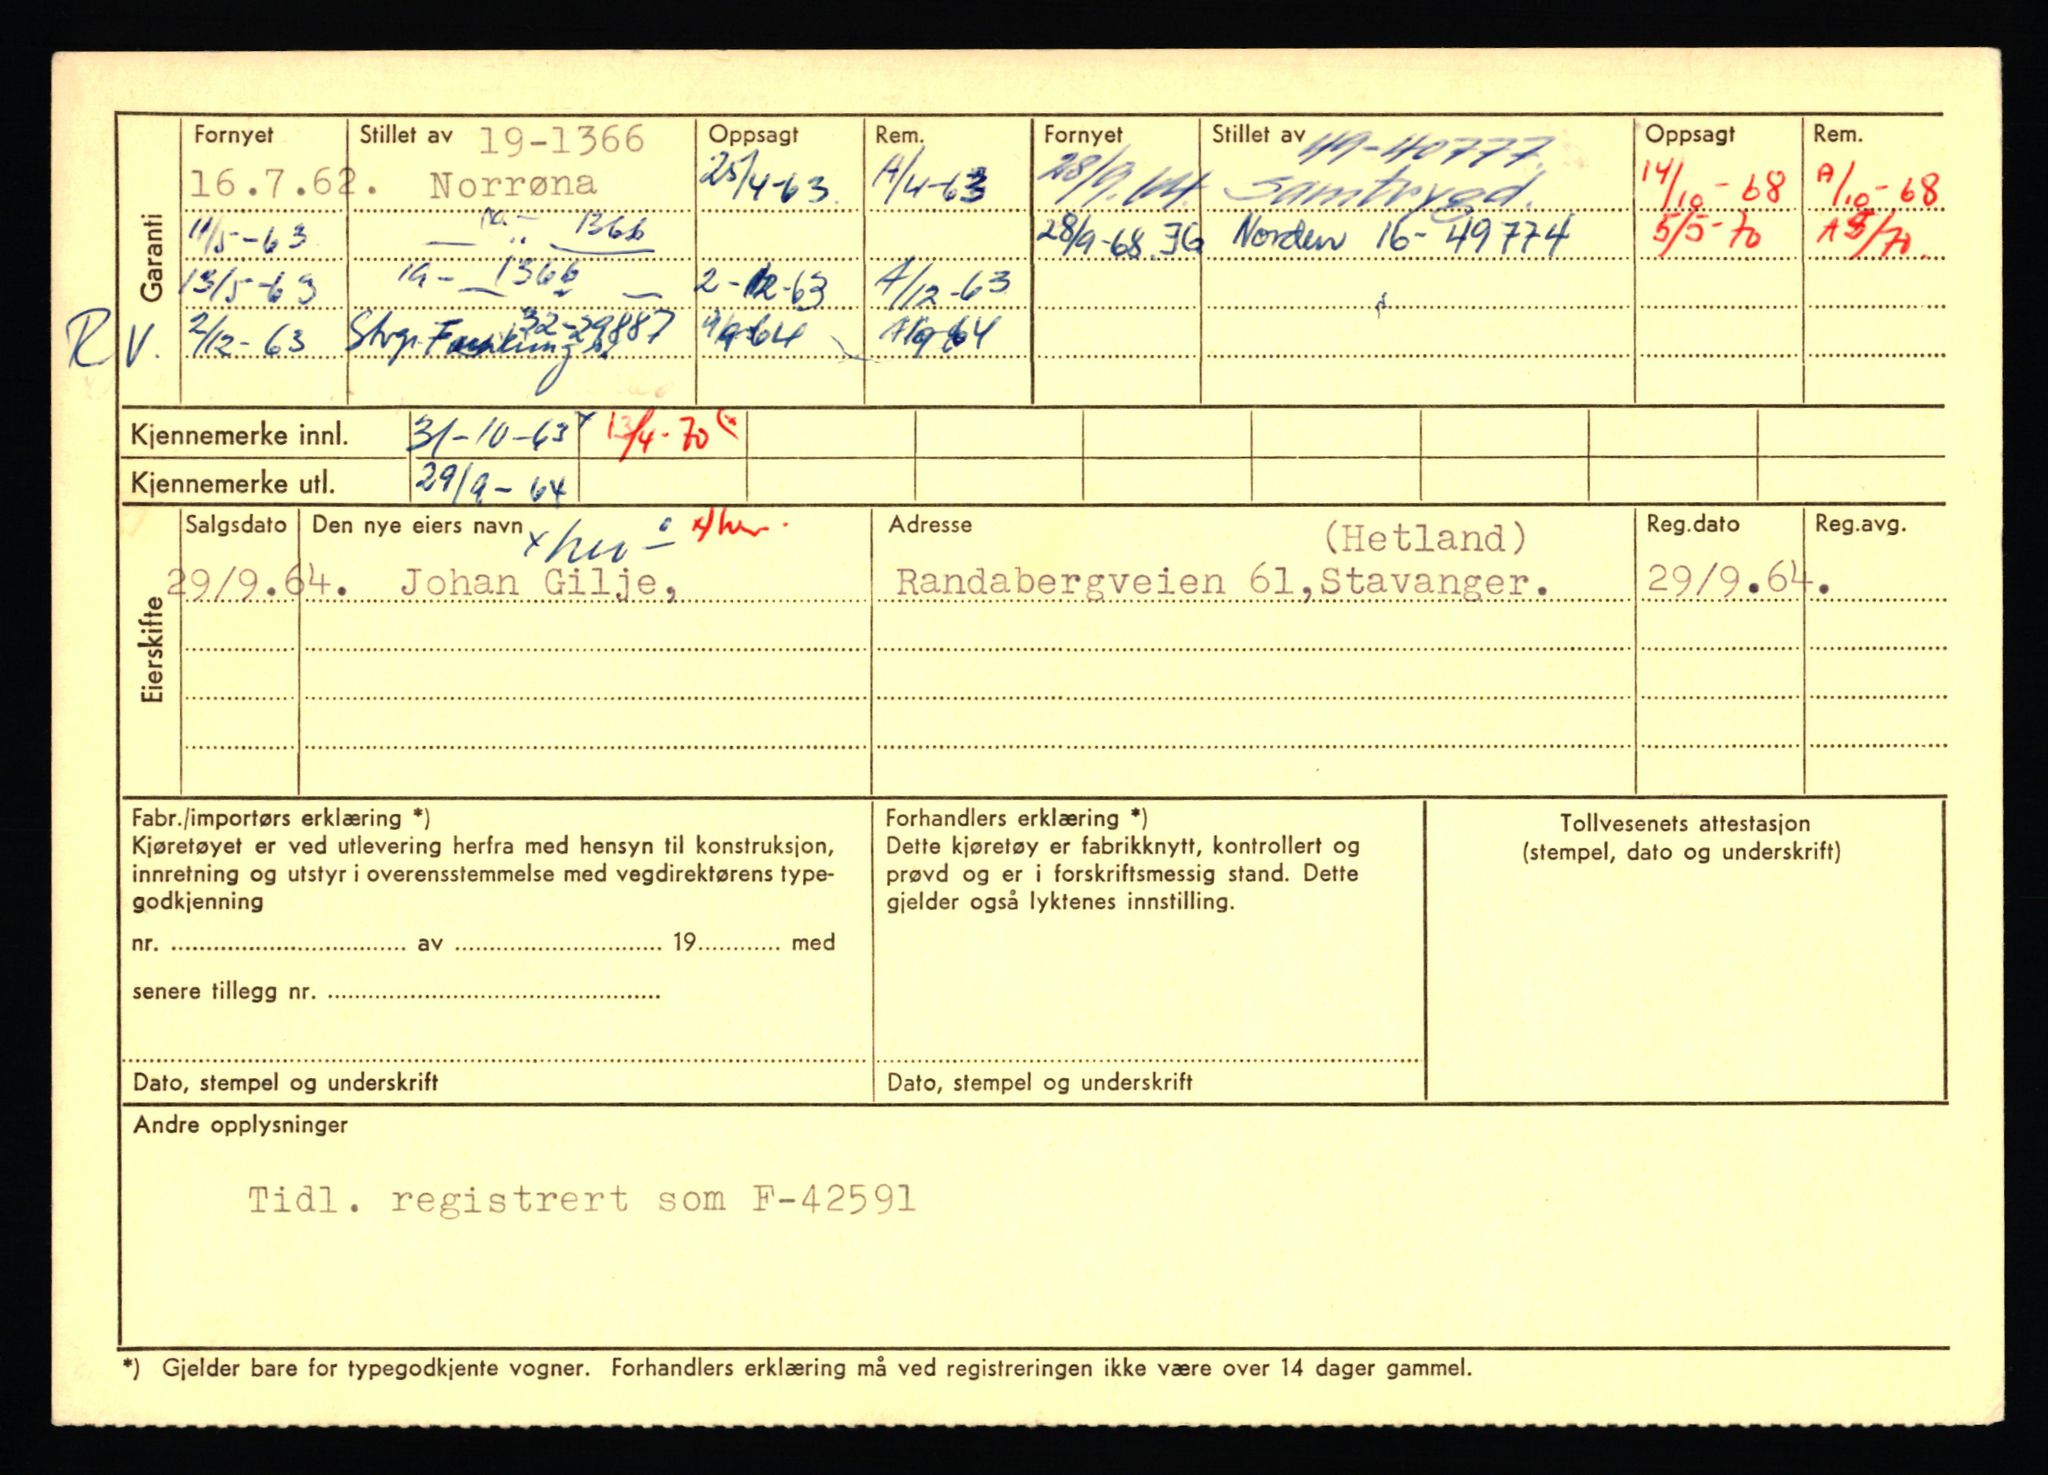 Garanti
Fornyet Stillet av 19-1366 Oppsagt Rem. Fornyet Stillet av 49-40777. Oppsagt Rem.
16.7.62. Norrøna 25/4-63. A/4-63 28/9.64. Samtrygd. 14/10-68 A/10-68
11/5-63. 19- 1366 28/9-68. JG Norden 16-49774 5/5-70 A 5/70.
13/5-63 19- 1366 2-12-63 A/12-63
RV. 2/12-63 Stvgr. 32-29887 9/9-64 A/9-64
Kjennemerke innl. 31-10-63x 13/4-70 (x
Kjennemerke utl. 29/9-64
Eierskifte
Salgsdato Den nye eiers navn x/her x/her. Adresse (Hetland) Reg.dato Reg.avg.
29/9.64. Johan Gilje, Randabergveien 61, Stavanger. 29/9.64.
Fabr./importørs erklæring *)
Kjøretøyet er ved utlevering herfra med hensyn til konstruksjon,
innretning og utstyr i overensstemmelse med vegdirektørens type-
godkjenning
nr. ........ av ........ 19........ med
senere tillegg nr. ........
Dato, stempel og underskrift
Forhandlers erklæring *)
Dette kjøretøy er fabrikknytt, kontrollert og
prøvd og er i forskriftsmessig stand. Dette
gjelder også lyktenes innstilling.
Dato, stempel og underskrift
Tollvesenets attestasjon
(stempel, dato og underskrift)
Andre opplysninger
Tidl. registrert som F-42591
*) Gjelder bare for typegodkjente vogner. Forhandlers erklæring må ved registreringen ikke være over 14 dager gammel.